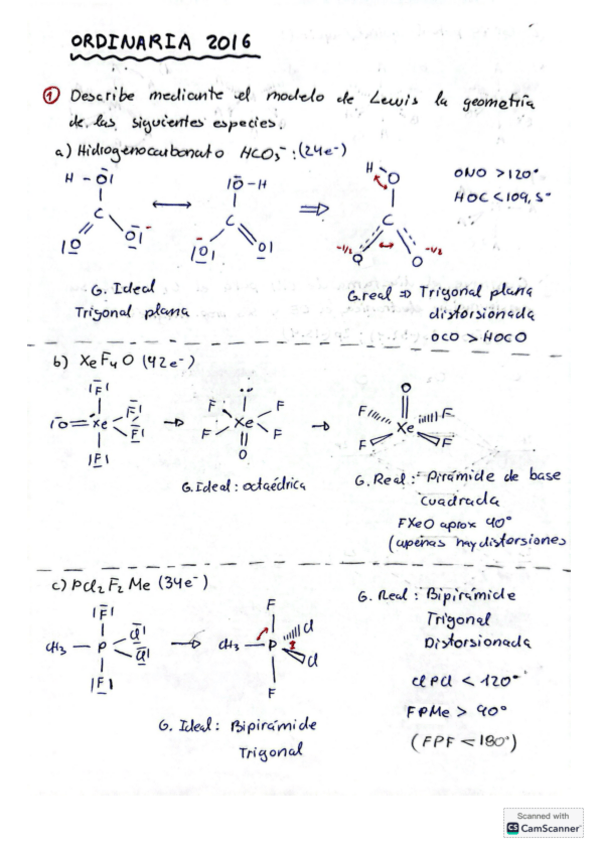 ORDINARIA 2016
① Describe mediante el modelo de Lewis la geometría
de las siguientes especies.
a) Hidrogenocarbonato HCO₃⁻: (24e⁻)
ONO >120°
HOC <109,5°
G. Ideal
Trigonal plana
G.real ⇒ Trigonal plana
distorsionada
OCO > HOCO
b) XeF₄O (42e⁻)
G.Ideal: octaédrica
G.Real: Pirámide de base
cuadrada
FXeO aprox 90°
(apenas hay distorsiones
c) PCl₂F₂Me (34e⁻)
G. Ideal: Bipirámide
Trigonal
G. Real: Bipirámide
Trigonal
Distorsionada
ClPCl < 120°
FPMe > 90°
(FPF < 180°)
Scanned with
CS CamScanner